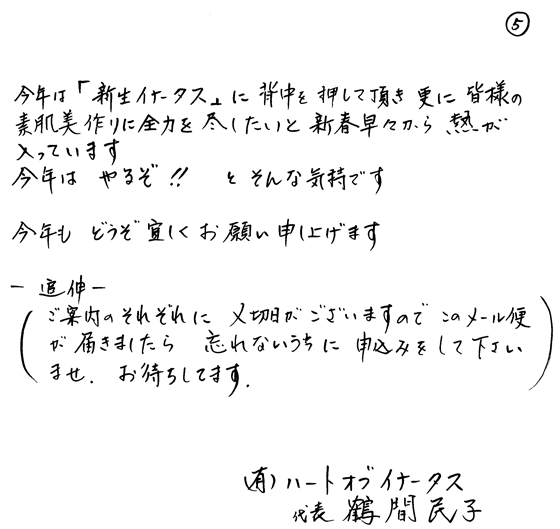 ⑤
今年は「新生イナータス」に 背中を 押して頂き 更に 皆様の
素肌美作りに全力を 尽したいと 新春早々から 熱が
入っています
今年は やるぞ!! と そんな気持です
今年も どうぞ 宜しく お願い 申し上げます
- 追伸 -
(ご案内の それぞれに 〆切日が ございますので このメール便
が 届きましたら 忘れないうちに 申込みを して 下さい
ませ. お待ちしてます.)
(有)ハート オブ イナータス
代表 鶴間民子